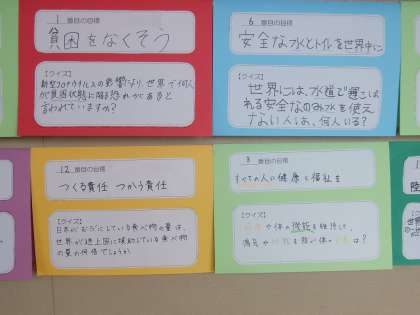 1 番目の目標
貧困をなくそう
【クイズ】
新型コロナウイルスの影響により、世界で何人
が貧困状態に陥る恐れがあると
言われていますか?
6 番目の目標
安全な水とトイレを世界中に
【クイズ】
世界には、水道で運ばれ
る安全なのみ水を使え
ない人は、何人いる?
12 番目の目標
つくる責任 つかう責任
【クイズ】
日本がむだにしている食べ物の量は、
世界が途上国に援助している食べ物
の量の何倍でしょうか
3 番目の目標
すべての人に健康と福祉を
【クイズ】
や体の機能を維持し、
病気や を防ぐ体の は?
陸
世界